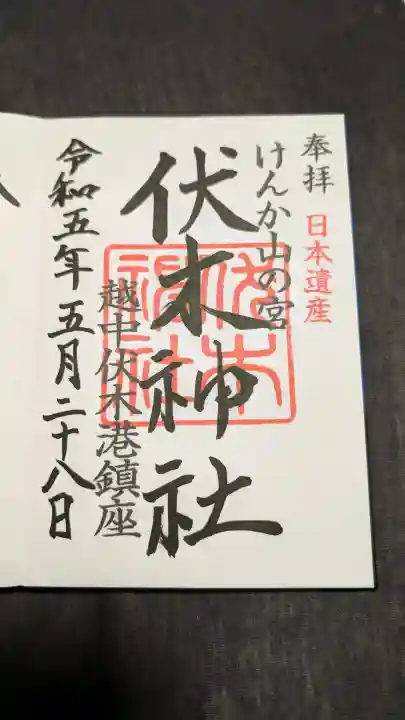 奉拝
日本遺産
けんか山の宮
伏木神社
伏木神社
越中伏木港鎮座
令和五年五月二十八日